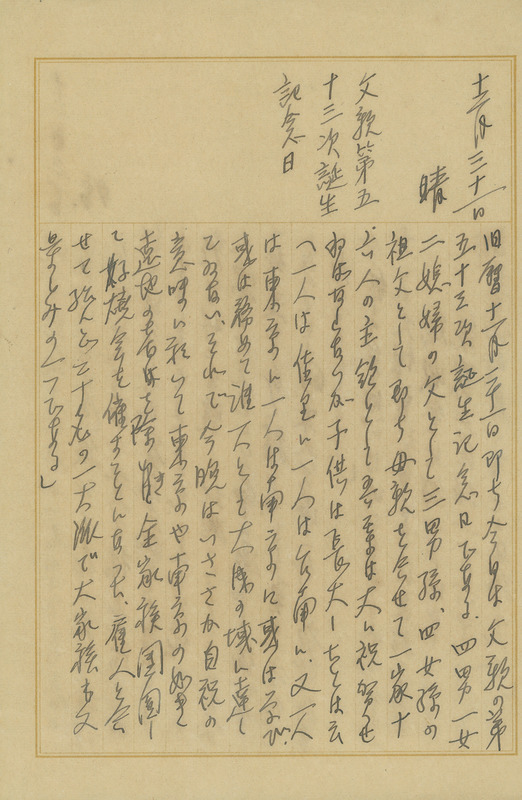 十二月三十一日
晴
父親第五
十三次誕生
記念日
旧暦十二月二十一日即ち今日は父親の第
五十三次誕生記念日である。四男一女
二媳婦の父として三男孫、四女孫の
祖父として即ち母親を合せて一家十
六人の主領として吾輩は大に祝賀せ
ねばならないが子供は長大したとは云
へ一人は佳里に一人は台南に、又一人
は東京に一人は南京に或は学び
或は務めて誰一人として大成の域に達し
てゐない、それで今晩はいささか自祝の
意味に於いて東京や南京の如き
遠地の者は除き全家族団円し
て好燒会を催すことになつた、雇人を合
せて総勢二十名の一大派で大家族も又
楽しみの一つである」